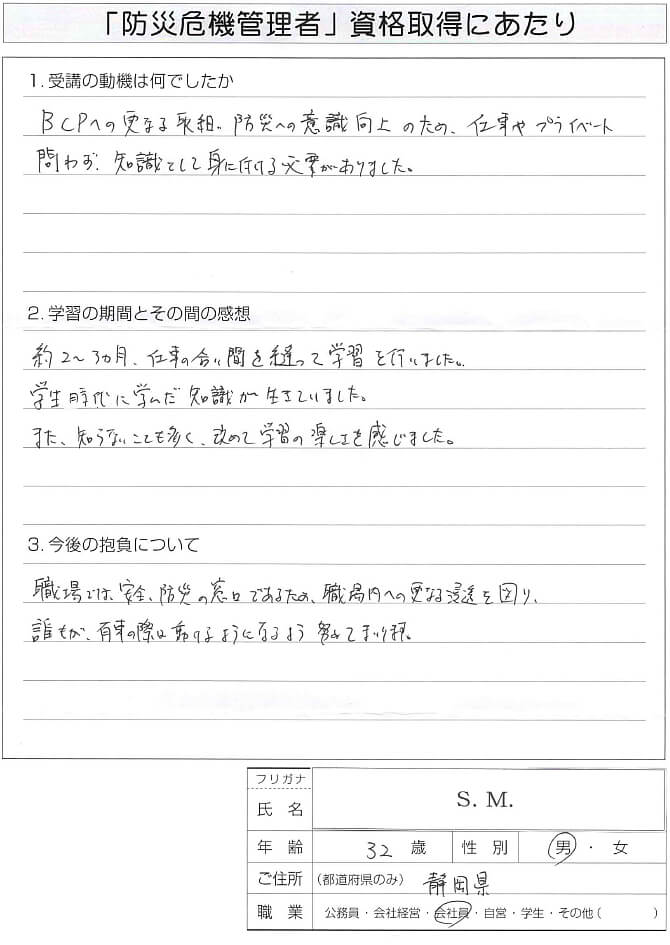 「防災危機管理者」資格取得にあたり
1. 受講の動機は何でしたか
BCPへの更なる取組、防災への意識向上のため、仕事やプライベート
問わず、知識として身に付ける必要がありました。
2. 学習の期間とその間の感想
約2〜3カ月、仕事の合い間を縫って学習を行いました。
学生時代に学んだ知識が生きていました。
また、知らないことも多く、改めて学習の楽しさを感じました。
3. 今後の抱負について
職場では、安全、防災の窓口であるため、職場内への更なる浸透を図り、
誰もが、有事の際に動けるようになるよう努めてまいります。
フリガナ
氏名 S. M.
年齢 32 歳 性別 男・女
ご住所 (都道府県のみ) 静岡県
職業 公務員・会社経営・会社員・自営・学生・その他( )